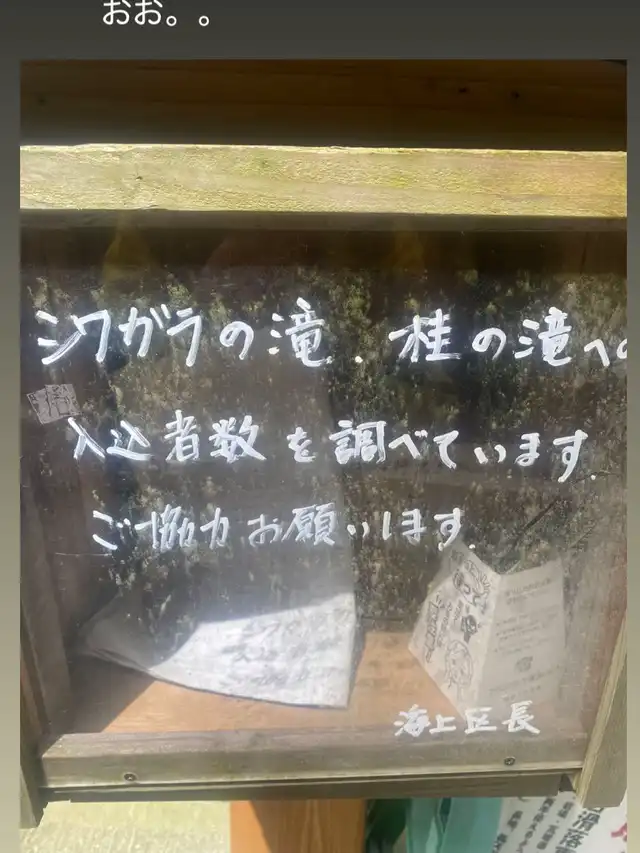 おお。。
シワガラの滝.桂の滝への
入込者数を調べています.
ご協力お願いします.
海上区長
滑落